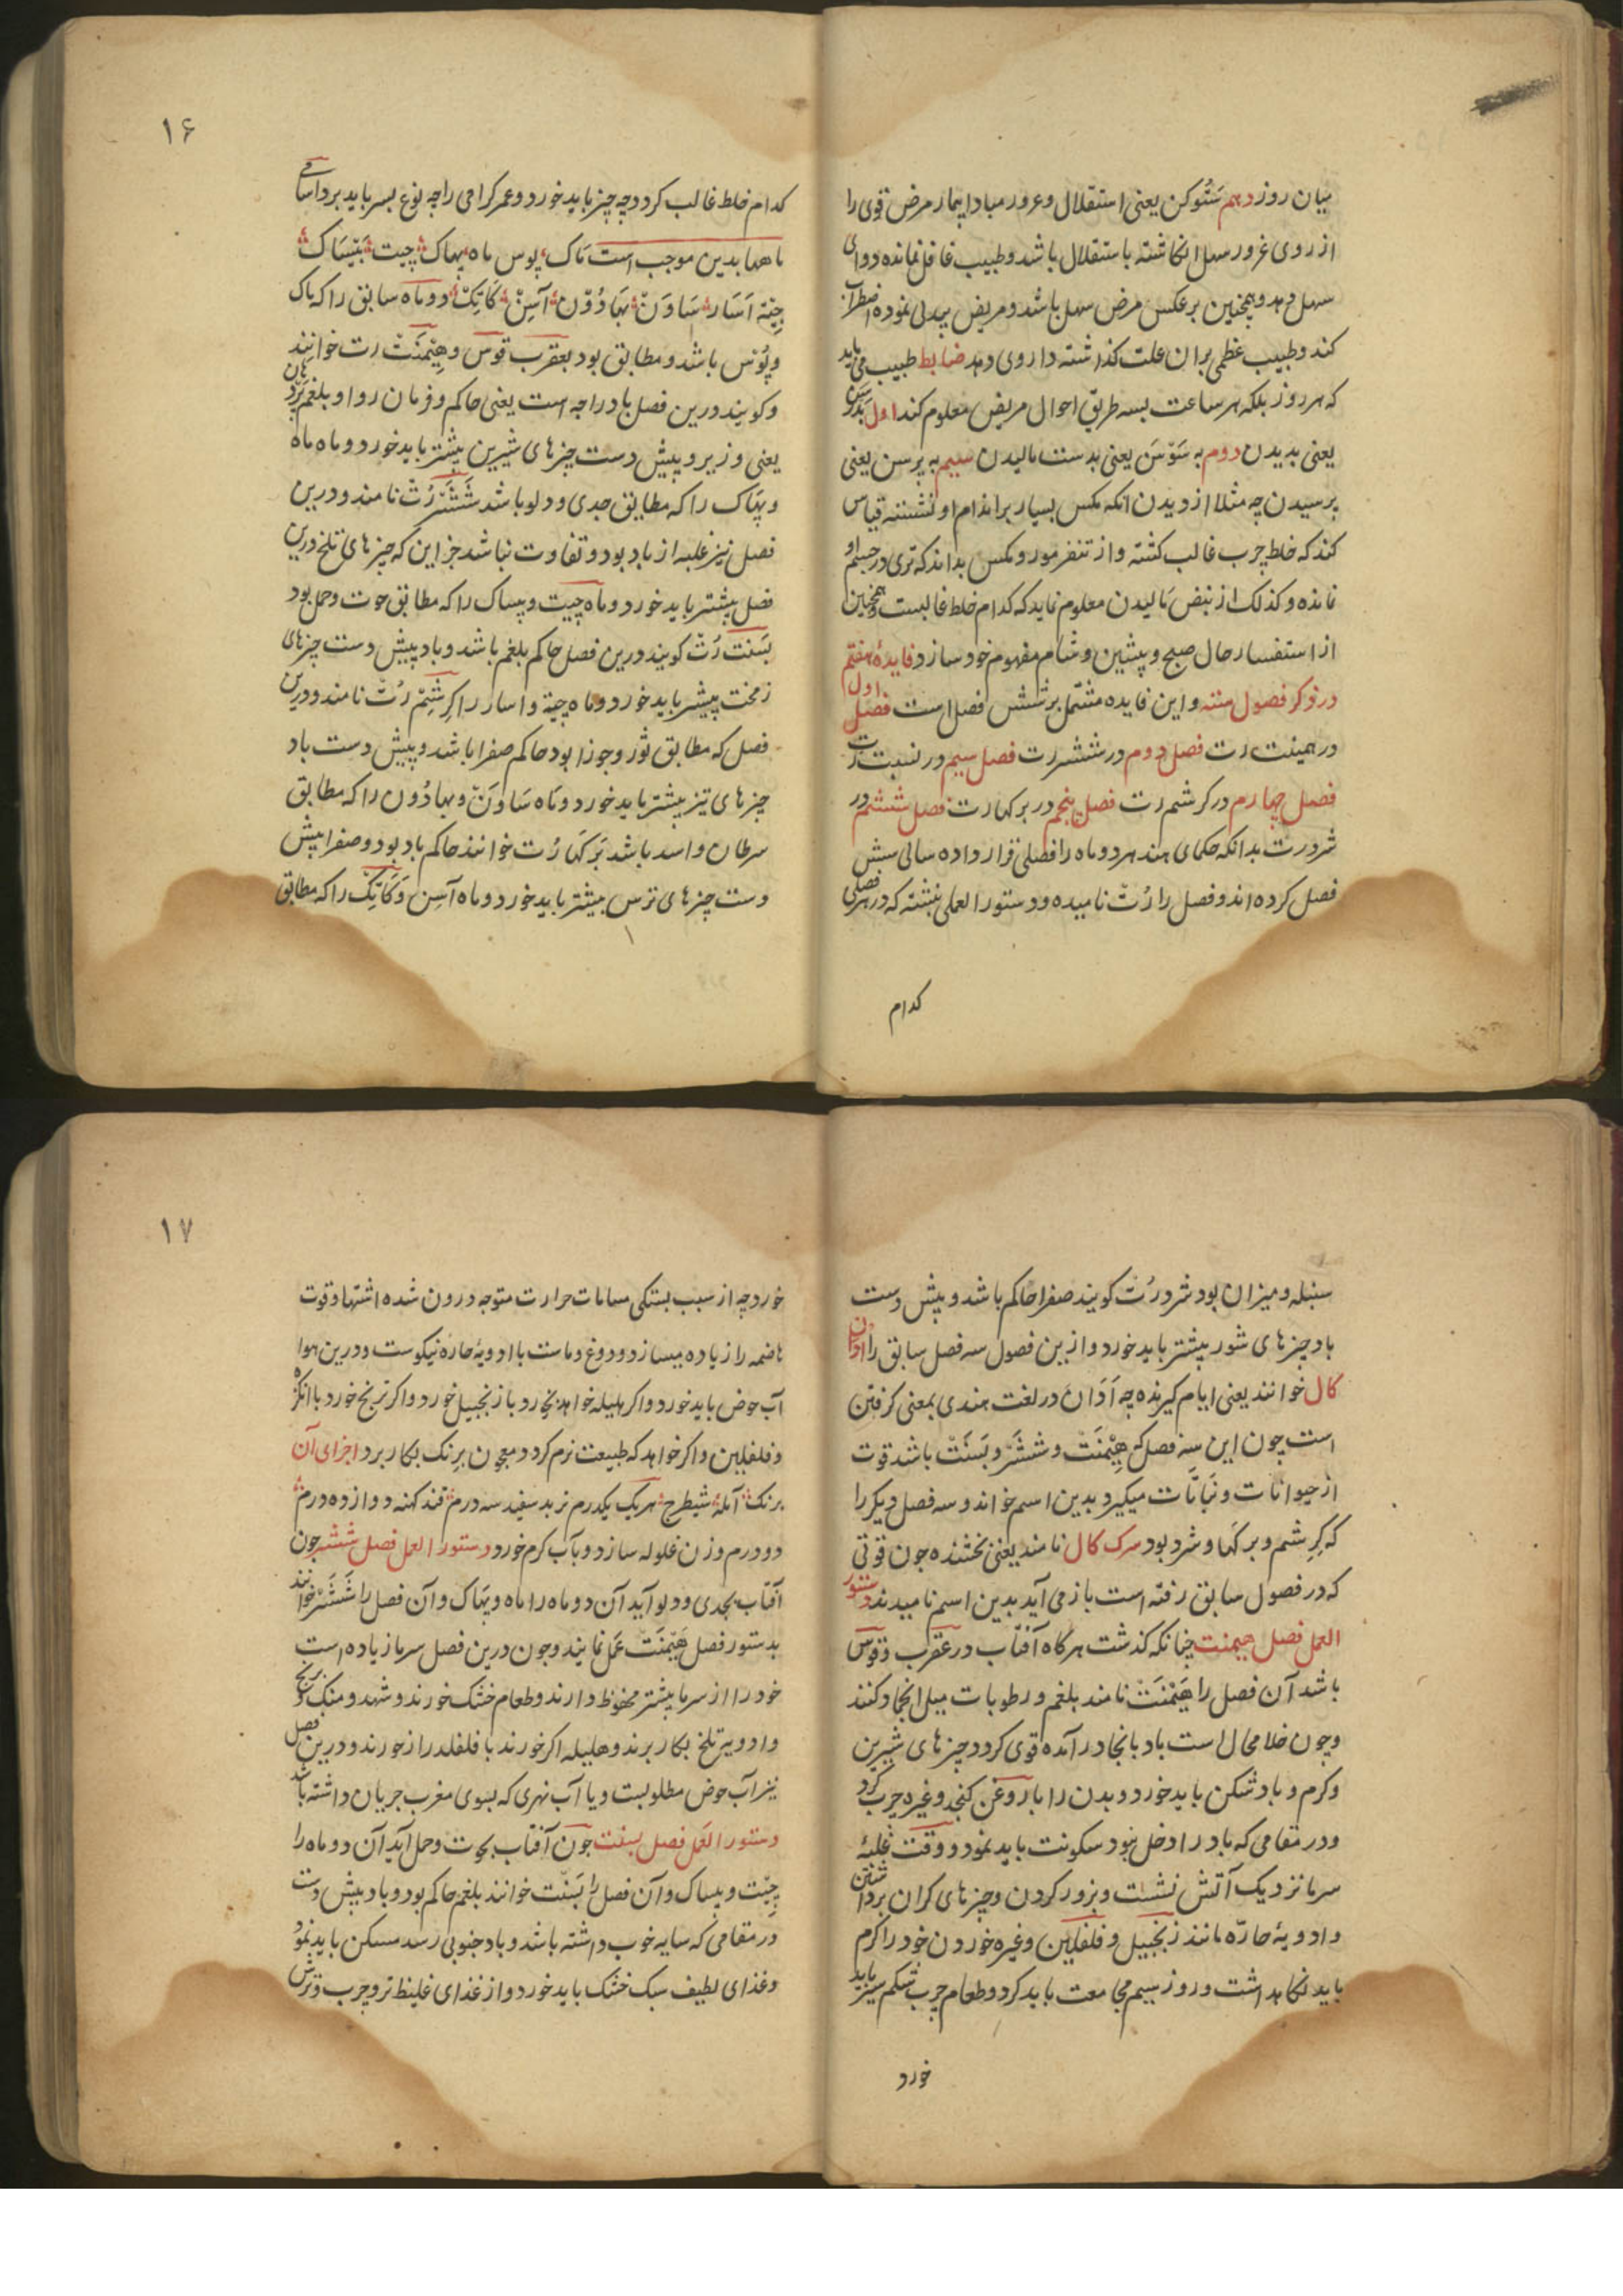 بیان روز دهم ستوکن یعنی استقلال و غرور مبادا بیمار مرض قوی را
از روی غرور سهل انکاشته باستقلال باشد و طبیب غافل نمانده دوای
سهل دهد و همچنین برعکس مرض سهل باشد و مریض بیدلی نموده اضطراب
کند و طبیب عظمی بران علت کذاشته داروی دهد ضابط طبیب می باید
که هر روز بلکه هر ساعت بسه طریق احوال مریض معلوم کند اول بدرسن
یعنی بدیدن دوم به سَوَسَن یعنی بدست مالیدن سیم به پرسن یعنی
پرسیدن چه مثلا از دیدن انکه مکس بسیار بر اندام او نشسته قیاس
کند که خلط چرب غالب کشته و از تنفر مور و مکس بداند که تری در جسم او
نمانده و کذلک از نبض مالیدن معلوم نماید که کدام خلط غالبست و همچنین
از استفسار حال صبح و پیشین و شام مفهوم خود سازد فایدهٔ هفتم
در ذکر فصول سته و این فایده مشتمل بر شش فصل است فصل اول
در هیمنت رت فصل دوم در ششر رت فصل سیم در بسنت رت
فصل چهارم در کرشم رت فصل پنجم در برکهارت فصل ششم در
شردرت بدانکه حکمای هند هر دو ماه را فصلی قرار داده سالی شش
فصل کرده اند و فصل را رُت نامیده و دستور العملی نبشته که در هر فصلی
کدام
۱۶
کدام خلط غالب کردد چه چیز باید خورد و عمر کرامی را چه نوع بسر باید برد اسامی
ماهها بدین موجب است ماک پوس ماه پهاک چیت بَیسَاک
جیتهَ اَسَار سَاوَن بَهادُون آسِن کَاتِک دو ماه سابق را که ماک
و پُوس باشد و مطابق بود بعقرب قوس و هِیمَنت رت خوانند
و کویند درین فصل باد راجه است یعنی حاکم و فرمان روا و بلغم پردهان
یعنی وزیر و پیش دست چیزهای شیرین بیشتر باید خورد و ماه ماه
و پهاک را که مطابق جدی و دلو باشد شَشَر رُت نامند و درین
فصل نیز غلبه از باد بود و تفاوت نباشد جز این که چیزهای تلخ درین
فصل بیشتر باید خورد و ماه چیت و بیساک را که مطابق حوت و حمل بود
بَسَنت رُت کویند درین فصل حاکم بلغم باشد و باد پیش دست چیزهای
زمخت بیشتر باید خورد و ماه جیته و اسار را کرِشَم رُت نامند و درین
فصل که مطابق ثور و جوزا بود حاکم صفرا باشد و پیش دست باد
چیزهای تیز بیشتر باید خورد و ماه سَاوَن و بهادُون را که مطابق
سرطان و اسد باشد بَرکهَا رُت خوانند حاکم باد بود و صفرا پیش
دست چیزهای ترش بیشتر باید خورد و ماه آسِن و کَاتِک را که مطابق
سنبله و میزان بود شردرُت کویند صفرا حاکم باشد و پیش دست
باد چیزهای شور بیشتر باید خورد و ازین فصول سه فصل سابق را ادان
کال خوانند یعنی ایام کیرنده چه اَدَان در لغت هندی بمعنی کرفتن
است چون این سه فصل که هِیمَنت و ششَر و بَسَنت باشد قوت
از حیوانات و نباتات میکیرد بدین اسم خواند و سه فصل دیکر را
که کرِشم و برکهَا و شرد بود سرک کال نامند یعنی بخشنده چون قوتی
که در فصول سابق رفته است باز می آید بدین اسم نامیدند دستور
العمل فصل هیمنت چنانکه کذشت هرکاه آفتاب در عقرب و قوس
باشد آن فصل را هَیمَنَت نامند بلغم و رطوبات میل انجماد کنند
و چون خلا محال است باد بانجا در آمده قوی کردد چیزهای شیرین
و کرم و باد شکن باید خورد و بدن را با روغن کنجد و غیره چرب کرد
و در مقامی که باد را دخل نبود سکونت باید نمود و وقت غلبهٔ
سرما نزدیک آتش نشست و بزور کردن و چیزهای کران برداشتن
و ادویهٔ حارّه مانند زنجبیل و فلفلین و غیره خوردن خود را کرم
باید نکاهداشت و روز سیم مجامعت باید کرد و طعام چرب شکم سیر باید
خورد
۱۷
خورد چه از سبب بستکی مسامات حرارت متوجه درون شده اشتها و قوت
هاضمه را زیاده میسازد و دوغ و ماست با ادویهٔ حاره نیکوست و درین هوا
آب حوض باید خورد و اکر هلیله خواهد بخورد با زنجبیل خورد و اکر ترنج خورد با انکزه
و فلفلین و اکر خواهد که طبیعت نرم کردد معجون برنک بکار برد اجزای آن
برنک آمله شیطرج هر یک یکدرم تربد سفید سه درم قند کهنه دوازده درم
دو درم وزن غلوله سازد و بآب کرم خورد دستور العمل فصل ششر چون
آفتاب بجدی و دلو آید آن دو ماه را ماه و پهاک و آن فصل را شَشَر خوانند
بدستور فصل هَیمَنت عمل نمایند و چون درین فصل سرما زیاده است
خود را از سرما بیشتر محفوظ دارند و طعام خشک خورند و شهد و منک و برنج
و ادویه تلخ بکار برند و هلیله اکر خورند با فلفل دراز خورند و درین فصل
نیز آب حوض مطلوبست و یا آب نهری که بسوی مغرب جریان داشته باشد
دستور العمل فصل بسنت چون آفتاب بحوت و حمل آید آن دو ماه را
چیت و بیساک و آن فصل را بَسَنت خوانند بلغم حاکم بود و باد پیش دست
در مقامی که سایه خوب داشته باشد و باد جنوبی رسد مسکن باید نمود
و غذای لطیف سبک خشک باید خورد و از غذای غلیظ تر و چرب و ترش